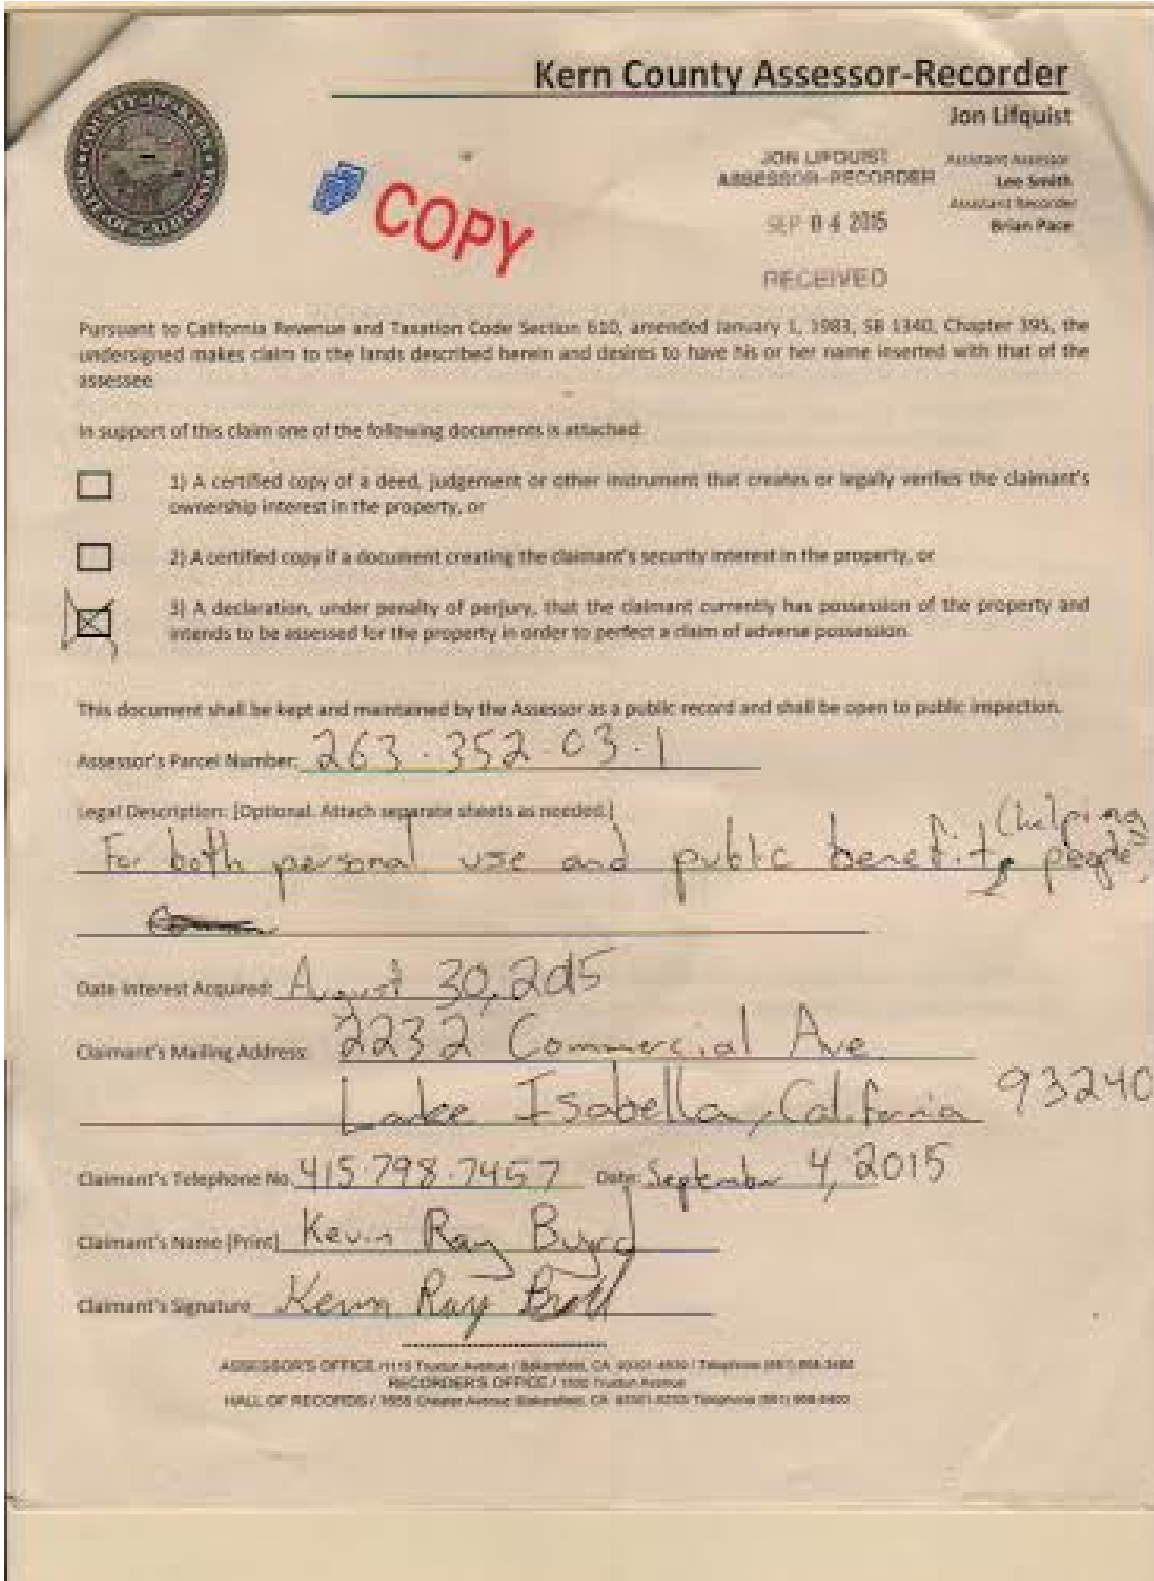 Kern County Assessor-Recorder
Jon Lifquist
JON LIFQUIST
ASSESSOR-RECORDER
SEP 04 2015
RECEIVED
Assistant Assessor
Lee Smith
Assistant Recorder
Brian Pace
COPY
Pursuant to California Revenue and Taxation Code Section 610, amended January 1, 1983, SB 1340, Chapter 395, the
undersigned makes claim to the lands described herein and desires to have his or her name inserted with that of the
assessee.
In support of this claim one of the following documents is attached:
1) A certified copy of a deed, judgement or other instrument that creates or legally verifies the claimant's
ownership interest in the property, or
2) A certified copy if a document creating the claimant's security interest in the property, or
3) A declaration, under penalty of perjury, that the claimant currently has possession of the property and
intends to be assessed for the property in order to perfect a claim of adverse possession.
This document shall be kept and maintained by the Assessor as a public record and shall be open to public inspection.
Assessor's Parcel Number: 263-352-03-1
Legal Description: [Optional. Attach separate sheets as needed.]
For both personal use and public benefit, (helping people)
Date Interest Acquired: August 30, 2015
Claimant's Mailing Address: 2232 Commercial Ave.
Lake Isabella, California 93240
Claimant's Telephone No. 415-798-7457 Date: September 4, 2015
Claimant's Name [Print] Kevin Ray Byrd
Claimant's Signature Kevin Ray
ASSESSOR'S OFFICE / 1115 Truxtun Avenue / Bakersfield, CA / Telephone (661)
RECORDER'S OFFICE / Truxtun Avenue
HALL OF RECORDS / Chester Avenue Bakersfield, CA Telephone (661)